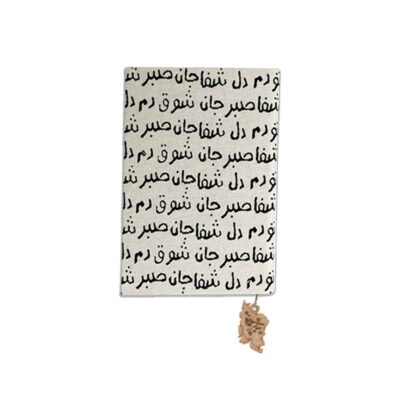 دم دل شفا جان صبر
شفا صبر جان شوق دم
دم دل شفا جان صبر
شفا صبر جان شوق دم
دم دل شفا جان صبر
شفا صبر جان شوق دم
دم دل شفا جان صبر
شفا صبر جان شوق دم
دم دل شفا جان صبر